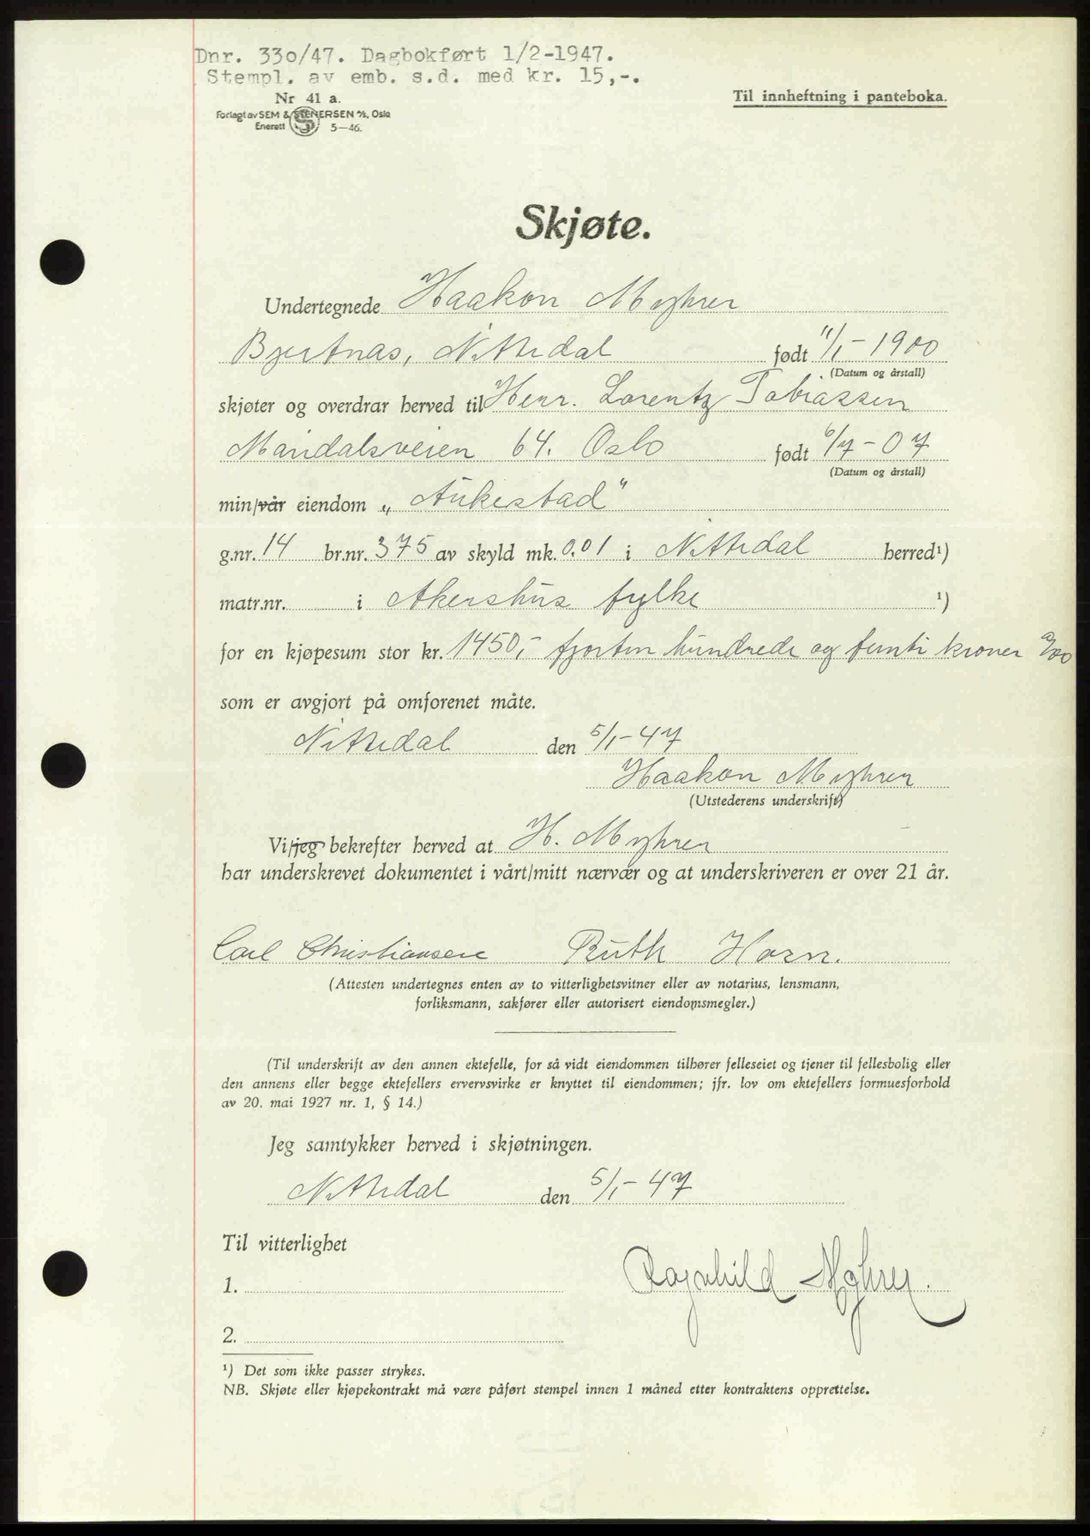 Dnr. 330/47. Dagbokført 1/2-1947.
Stempl. av emb. s.d. med kr. 15,-.
Nr 41 a.
Forlagt av SEM & STENERSEN A/S, Oslo
Enerett 5—46.
Til innheftning i panteboka.
Skjøte.
Undertegnede Haakon Myhrer
Bjertnæs, Nittedal født 11/1-1900
(Datum og årstall)
skjøter og overdrar herved til Henr. Lorentz Tobiassen
Maridalsveien 64. Oslo født 6/7-07
(Datum og årstall)
min/vår eiendom „Aukestad"
g.nr. 14 br.nr. 375 av skyld mk. 0.01 i Nittedal herred¹)
matr.nr. i Akershus fylke ¹)
for en kjøpesum stor kr. 1450,- fjorten hundrede og femti kroner
som er avgjort på omforenet måte.
Nittedal den 5/1-47
Haakon Myhrer
(Utstederens underskrift)
Vi/jeg bekrefter herved at H. Myhrer
har underskrevet dokumentet i vårt/mitt nærvær og at underskriveren er over 21 år.
Carl Christiansen Ruth Horn.
(Attesten undertegnes enten av to vitterlighetsvitner eller av notarius, lensmann,
forliksmann, sakfører eller autorisert eiendomsmegler.)
(Til underskrift av den annen ektefelle, for så vidt eiendommen tilhører felleseiet og tjener til fellesbolig eller
den annens eller begge ektefellers ervervsvirke er knyttet til eiendommen; jfr. lov om ektefellers formuesforhold
av 20. mai 1927 nr. 1, § 14.)
Jeg samtykker herved i skjøtningen.
Nittedal den 5/1-47
Til vitterlighet
Ragnhild Myhrer.
1.
2.
¹) Det som ikke passer strykes.
NB. Skjøte eller kjøpekontrakt må være påført stempel innen 1 måned etter kontraktens opprettelse.